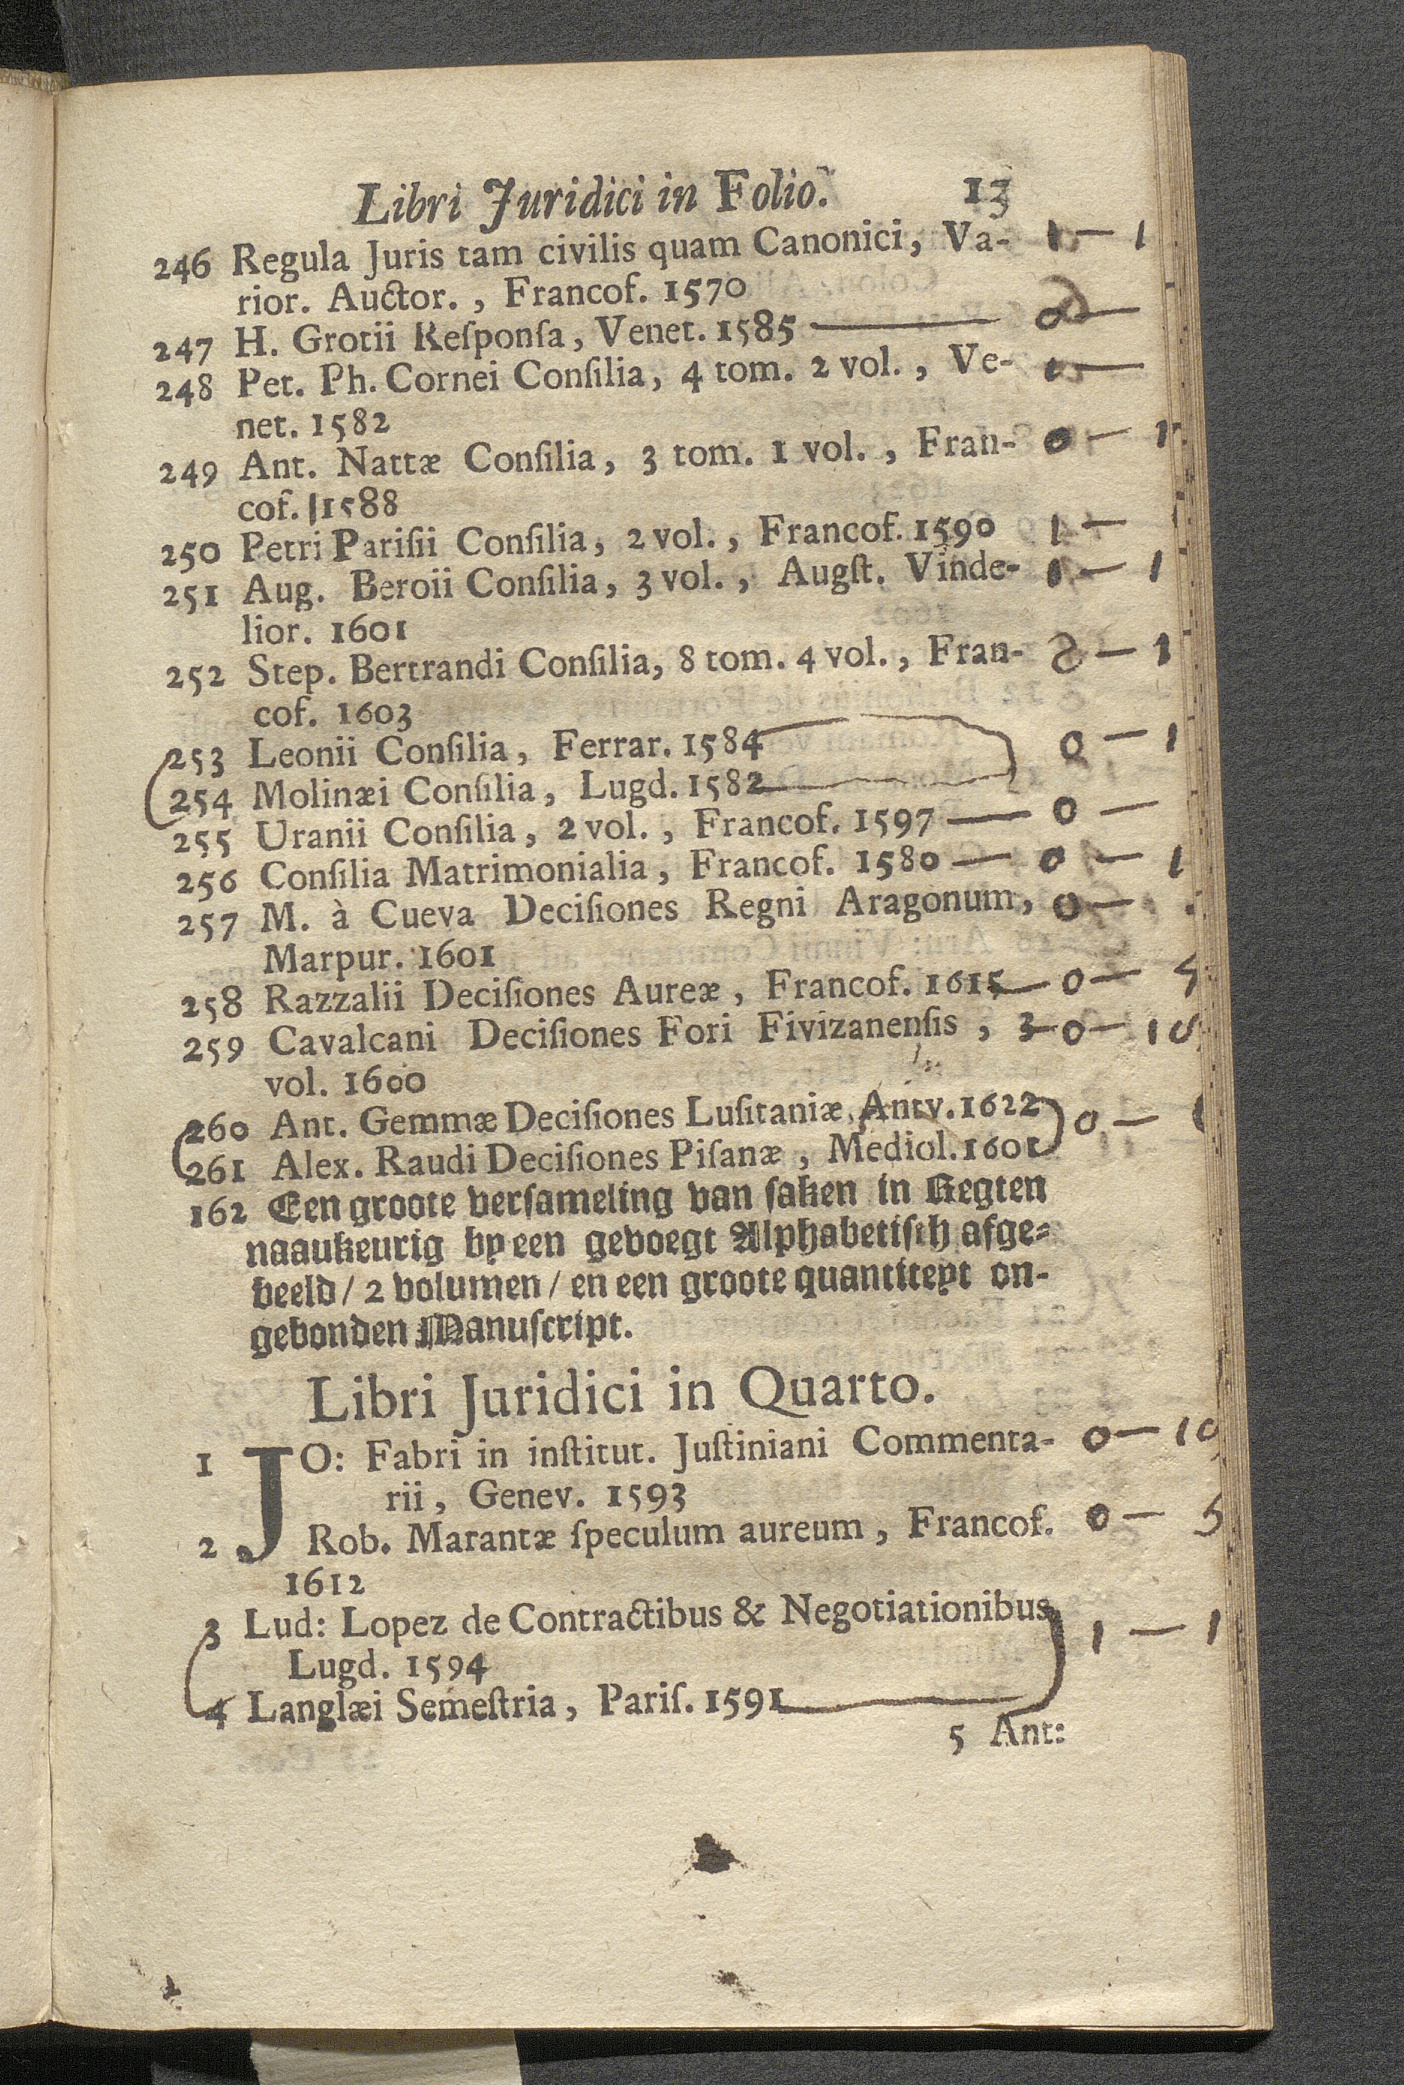 Libri Juridici in Folio. 13
246 Regula Juris tam civilis quam Canonici, Va- 1 — 1
rior. Auctor. , Francof. 1570
247 H. Grotii Reſponſa, Venet. 1585
248 Pet. Ph. Cornei Conſilia, 4 tom. 2 vol. , Ve-
net. 1582
249 Ant. Nattæ Conſilia, 3 tom. 1 vol. , Fran- 0 — 1
cof. 1588
250 Petri Pariſii Conſilia, 2 vol. , Francof. 1590 1 —
251 Aug. Beroii Conſilia, 3 vol. , Augſt. Vinde- 1 — 1
lior. 1601
252 Step. Bertrandi Conſilia, 8 tom. 4 vol. , Fran- — 1
cof. 1603
253 Leonii Conſilia, Ferrar. 1584 0 — 1
254 Molinæi Conſilia, Lugd. 1582
255 Uranii Conſilia, 2 vol. , Francof. 1597 — 0 —
256 Conſilia Matrimonialia, Francof. 1580 — 0 — 1
257 M. à Cueva Deciſiones Regni Aragonum, 0 —
Marpur. 1601
258 Razzalii Deciſiones Aureæ, Francof. 1615 — 0 —
259 Cavalcani Deciſiones Fori Fivizanenſis, 3 — 0 — 10
vol. 1600
260 Ant. Gemmæ Deciſiones Luſitaniæ, Antv. 1622 0 —
261 Alex. Raudi Deciſiones Piſanæ, Mediol. 1601
162 Een groote verſameling van ſaken in Regten
naaukeurig by een gevoegt Alphabetiſch afge-
beeld / 2 volumen / en een groote quantiteyt on-
gebonden Manuſcript.
Libri Juridici in Quarto.
1 JO: Fabri in inſtitut. Juſtiniani Commenta- 0 — 10
rii, Genev. 1593
2 Rob. Marantæ ſpeculum aureum, Francof. 0 — 5
1612
3 Lud: Lopez de Contractibus & Negotiationibus 1 — 1
Lugd. 1594
4 Langlæi Semeſtria, Pariſ. 1591
5 Ant: